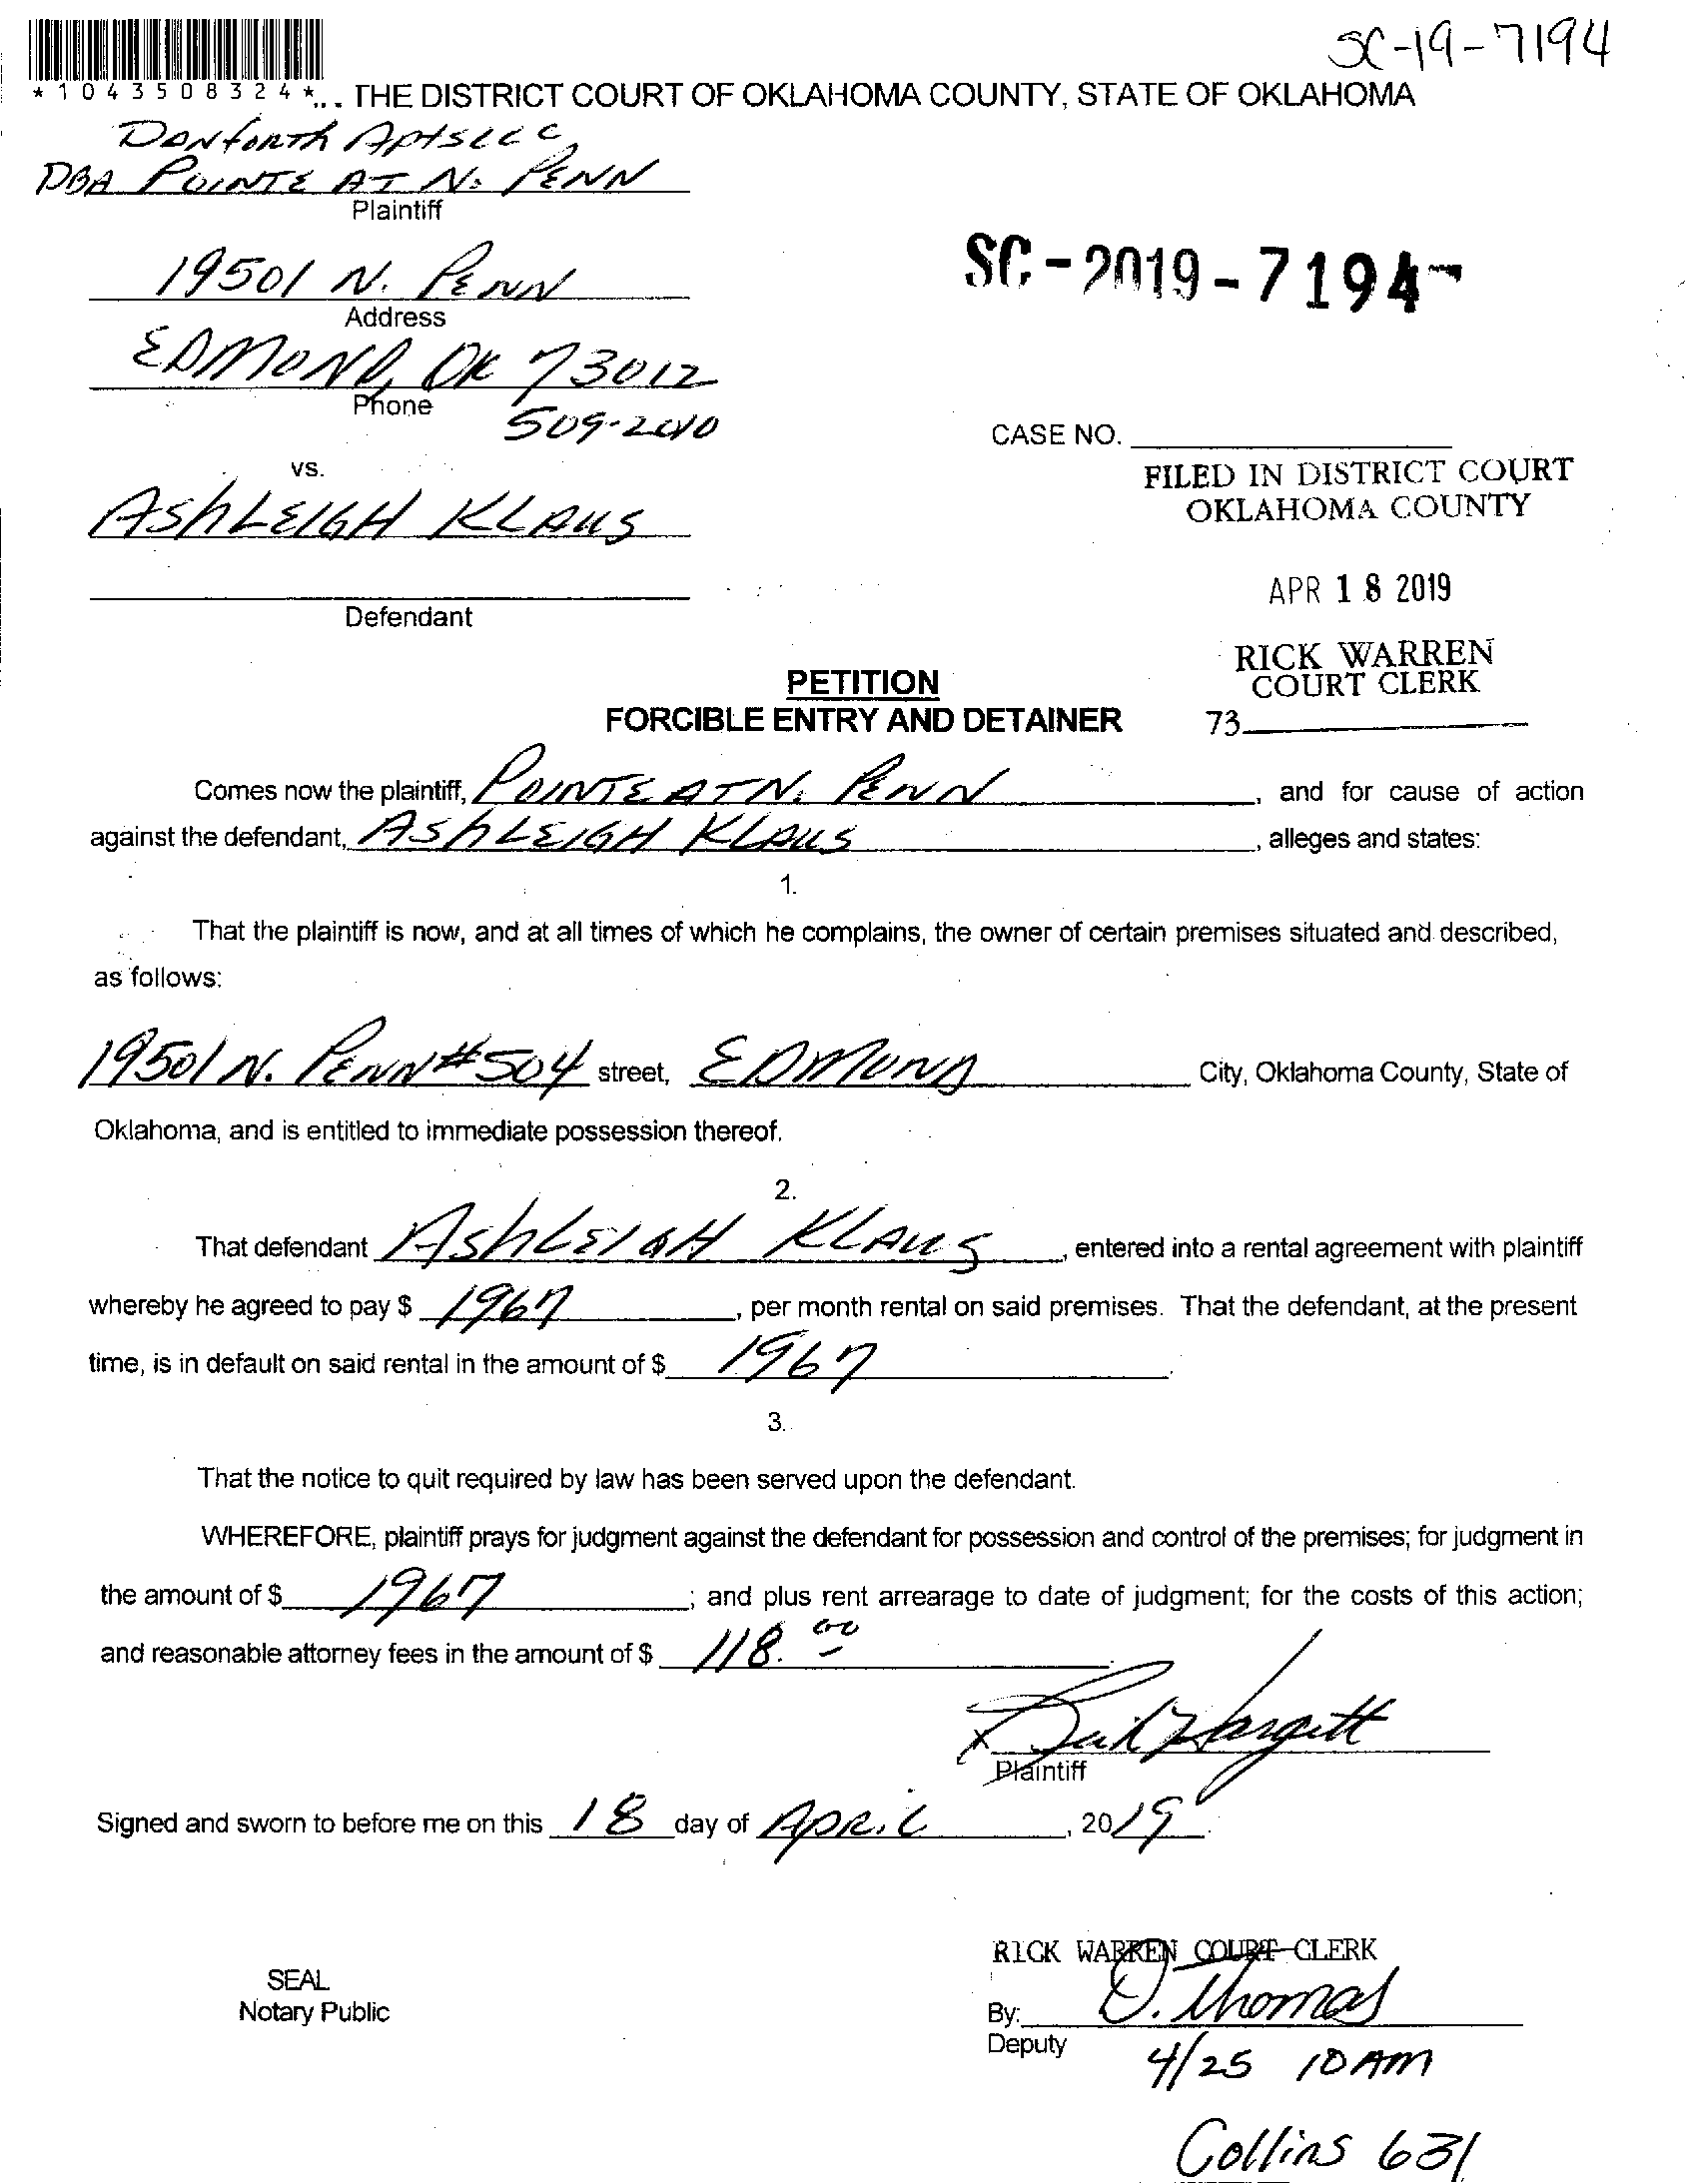 SC-19-7194
*1043508324*
THE DISTRICT COURT OF OKLAHOMA COUNTY, STATE OF OKLAHOMA
DANFORTH APTS LLC
DBA POINTE AT N. PENN
Plaintiff
19501 N. PENN
Address
SC-2019-7194
EDMOND, OK 73012
Phone
509-2010
CASE NO.
vs.
FILED IN DISTRICT COURT
OKLAHOMA COUNTY
ASHLEIGH KLAUS
APR 18 2019
Defendant
RICK WARREN
COURT CLERK
73
PETITION
FORCIBLE ENTRY AND DETAINER
Comes now the plaintiff, POINTE AT N. PENN, and for cause of action
against the defendant, ASHLEIGH KLAUS, alleges and states:
1.
That the plaintiff is now, and at all times of which he complains, the owner of certain premises situated and described,
as follows:
19501 N. PENN #504 street, EDMOND City, Oklahoma County, State of
Oklahoma, and is entitled to immediate possession thereof.
2.
That defendant ASHLEIGH KLAUS, entered into a rental agreement with plaintiff
whereby he agreed to pay $ 1967, per month rental on said premises. That the defendant, at the present
time, is in default on said rental in the amount of $ 1967.
3.
That the notice to quit required by law has been served upon the defendant.
WHEREFORE, plaintiff prays for judgment against the defendant for possession and control of the premises; for judgment in
the amount of $ 1967; and plus rent arrearage to date of judgment; for the costs of this action;
and reasonable attorney fees in the amount of $ 118.00.
X
Plaintiff
Signed and sworn to before me on this 18 day of APRIL, 2019.
RICK WARREN COURT CLERK
SEAL
Notary Public
By: D. Thomas
Deputy
4/25 10 AM
Collins 631